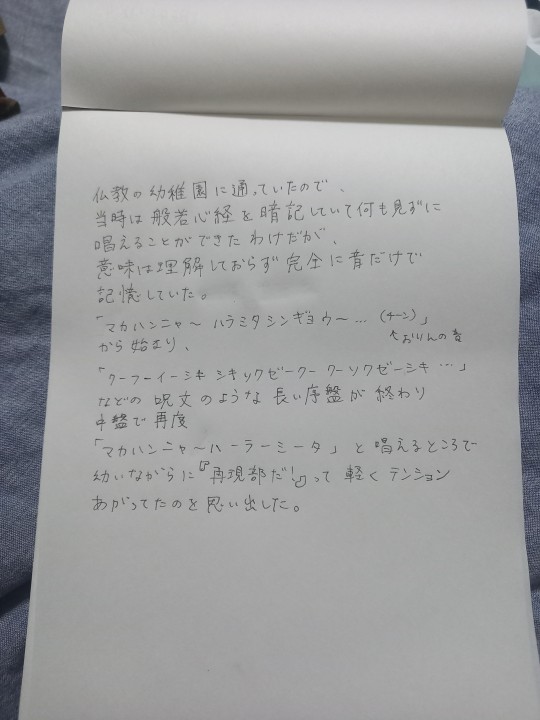 仏教の幼稚園に通っていたので、
当時は般若心経を暗記していて何も見ずに
唱えることができたわけだが、
意味は理解しておらず完全に音だけで
記憶していた。
「マカハンニャ〜 ハラミタシンギョウ〜… (チーン)」
↑おりんの音
から始まり、
「クーフーイーシキ シキソクゼークー クーソクゼーシキ …」
などの呪文のような長い序盤が終わり
中盤で再度
「マカハンニャ〜ハーラーミータ」と唱えるところで
幼いながらに『再現部だ!』って軽くテンション
あがってたのを思い出した。